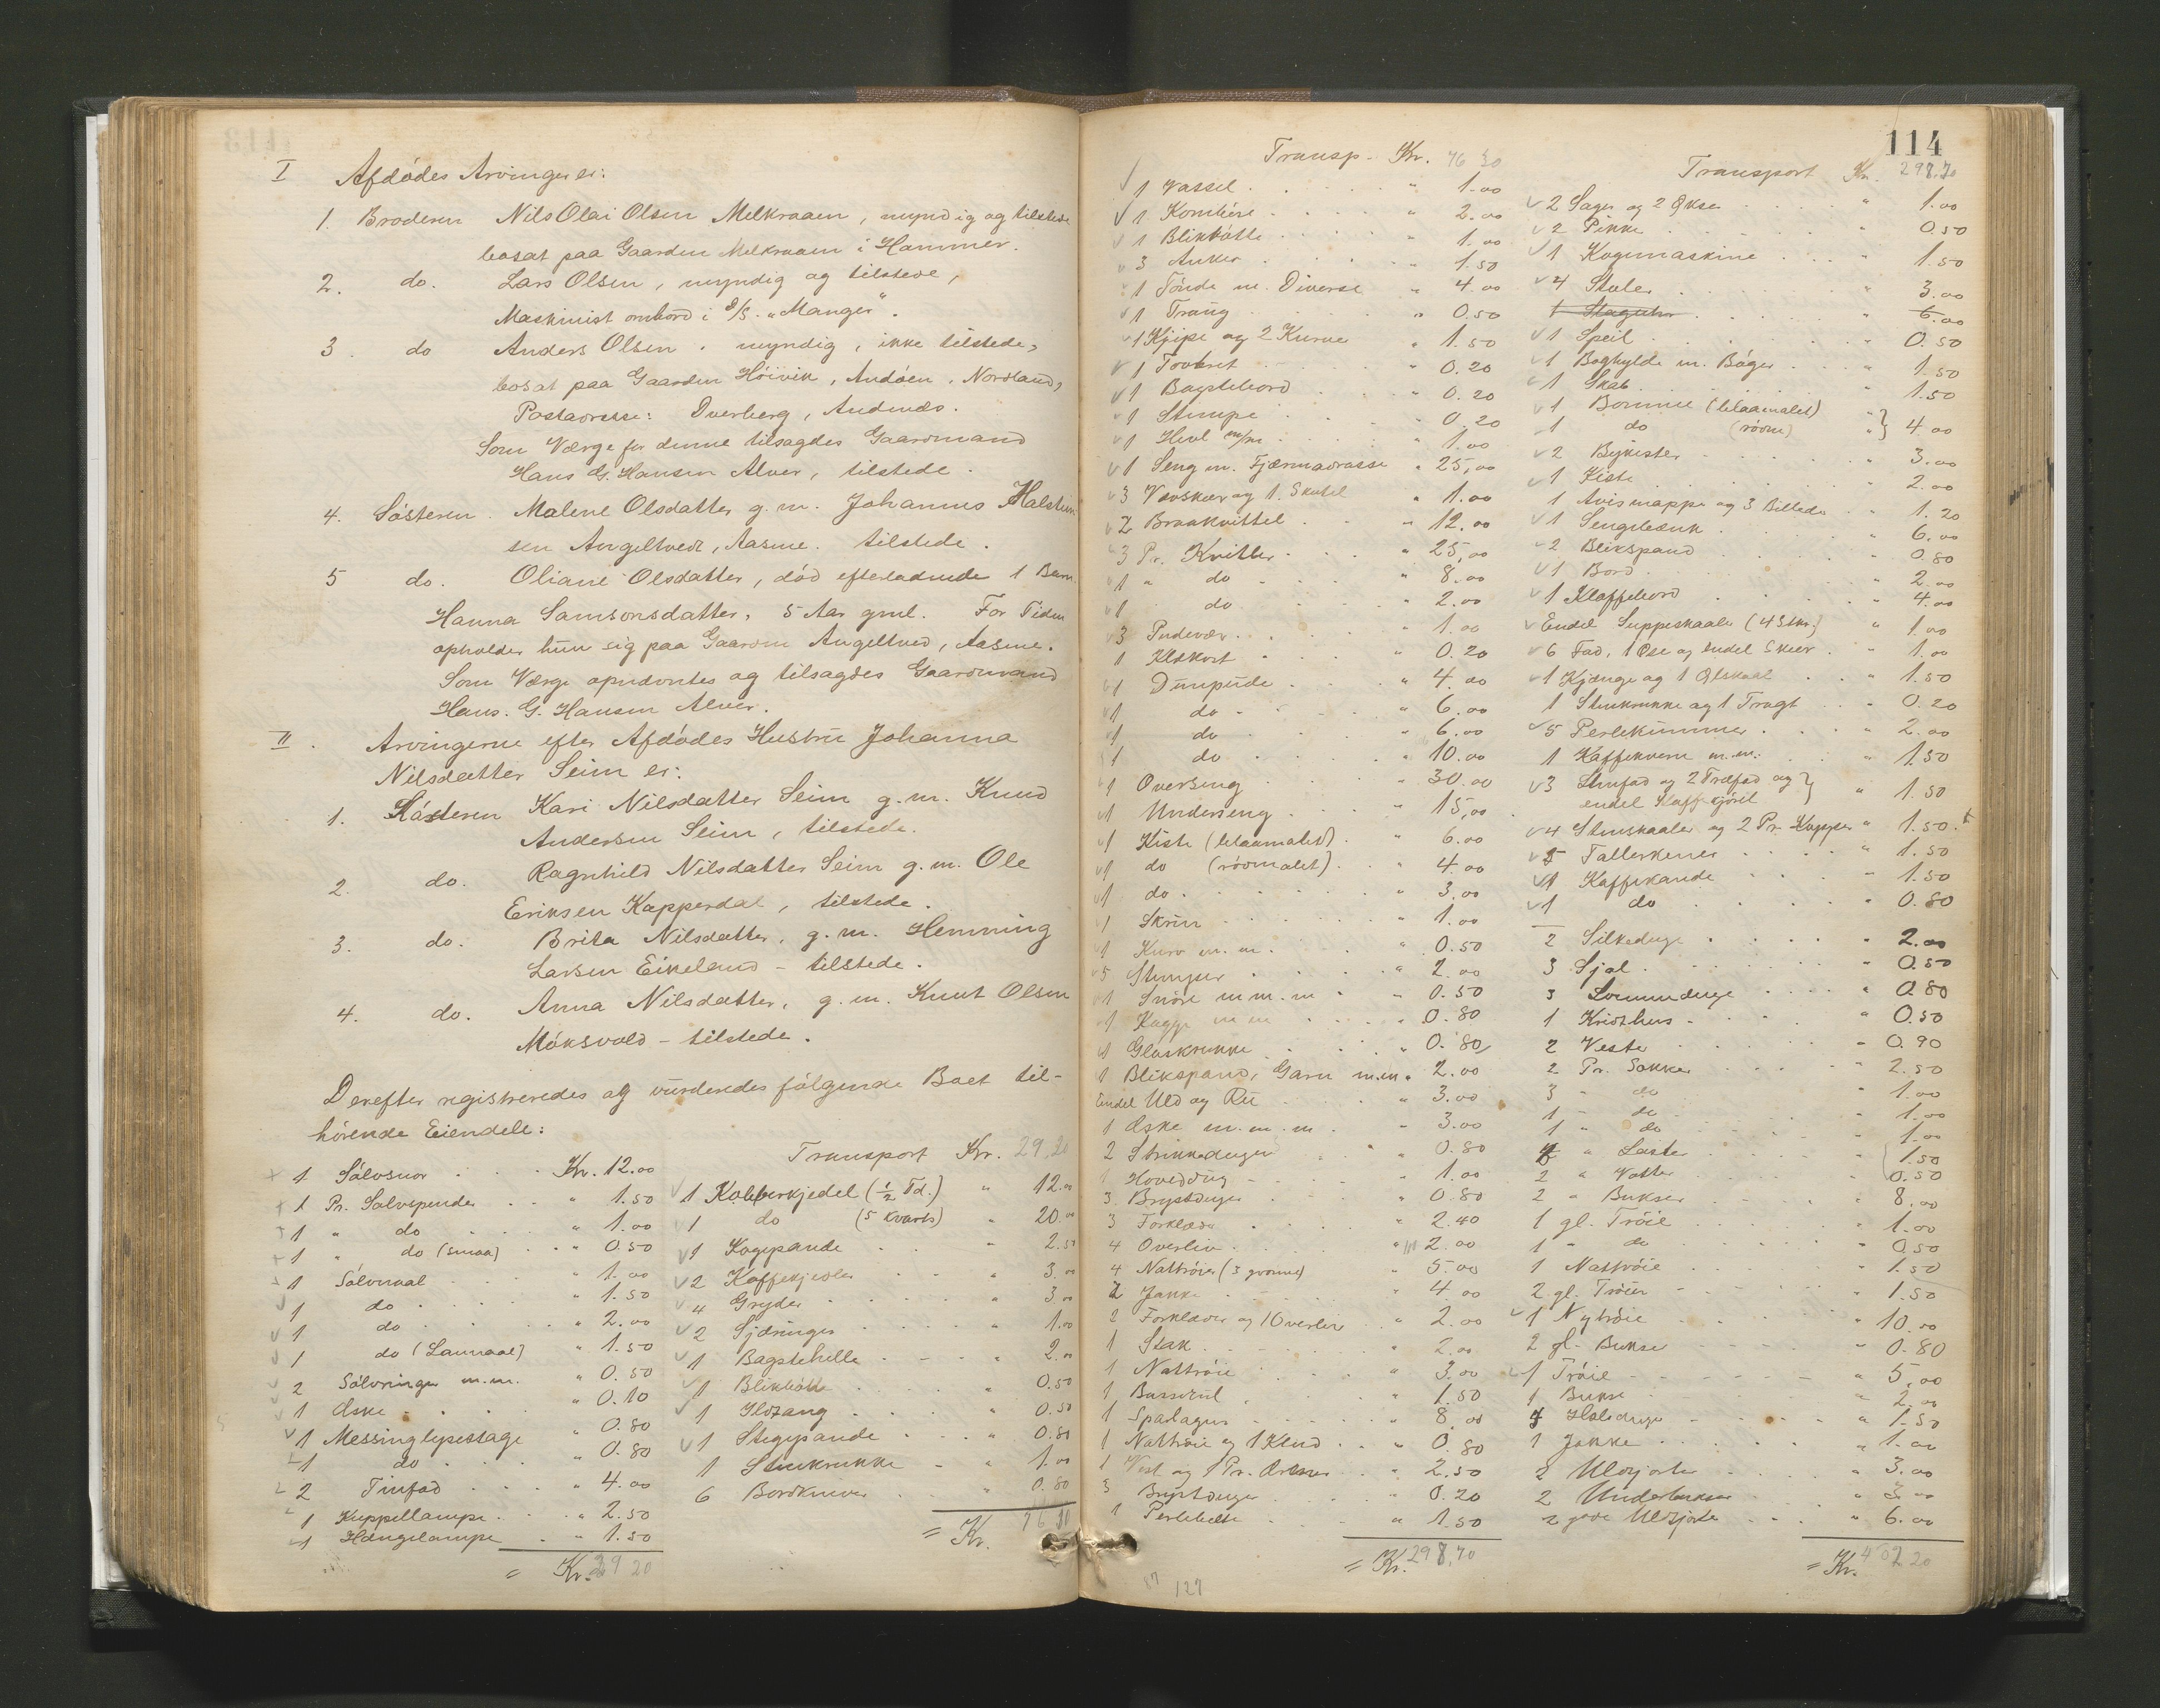 I Afdødes Arvinger er:
1. Broderen Nils Olai Olsen Melkraaen, myndig og tilstede
bosat paa Gaarden Melkraaen i Hammer.
2. do. Lars Olsen, myndig og tilstede,
Maskinist ombord i S/S. "Manger".
3. do Anders Olsen. myndig, ikke tilstede,
bosat paa Gaarden Høivik, Andøen, Nordland,
Postadresse: Dverberg, Andenæs.
Som Værge for denne tilsagdes Gaardmand
Hans G. Hansen Alver, tilstede.
4. Søsteren. Malene Olsdatter g. m. Johannes Halstein
sen Angeltvedt, Aasene. tilstede.
5 do. Oliane Olsdatter, død efterladende 1 Barn
Hanna Samsonsdatter, 5 Aar gml. For Tiden
opholder hun sig paa Gaarden Angeltved, Aasene.
Som Værge opnævntes og tilsagdes Gaardmand
Hans. G. Hansen Alver.
II. Arvingerne efter Afdødes Hustru Johanna
Nilsdatter Seim er:
1. Søsteren Kari Nilsdatter Seim g. m. Knud
Andersen Seim, tilstede.
2. do. Ragnhild Nilsdatter Seim g. m. Ole
Eriksen Kapperdal, tilstede.
3. do. Brita Nilsdatter, g. m. Hemming
Larsen Eikeland - tilstede.
4. do. Anna Nilsdatter, g. m. Knut Olsen
Møksvold - tilstede.
Derefter registreredes og vurderedes følgende Boet til-
hørende Eiendele:
1 Sølvsnor Kr. 12.00
1 Pr. Sølvspender " 1.50
1 " do " 1.00
1 " do (smaa) " 0.50
1 Sølvnaal " 1.00
1 do " 1.50
1 do " 2.00
1 do (Lannaal) " 1.50
2 Sølvringer m.m. " 0.50
1 Æske " 0.10
1 Messinglysestage " 0.80
1 do " 0.80
2 Tinfad " 4.00
1 Kuppellampe " 2.50
1 Hængelampe " 1.50
= Kr. 29 20
Transport Kr. 29.20
1 Kobberkjedel (1/2 Td.) " 12.00
1 do (5 Kvarts) " 20.00
1 Kogepande " 2.50
2 Kaffekjedler " 3.00
4 Gryder " 3.00
2 Sjdringer " 1.00
1 Bagstehelle " 2.00
1 Blikbøtte " 0.50
1 Ildtang " 0.50
1 Stegepande " 0.80
1 Stenkrukke " 1.00
6 Bordkniver " 0.80
= Kr. 76.30
114
Transp. Kr. 76 30
1 Vassel " 1.00
1 Kornbøre " 2.00
1 Blikbøtte " 1.00
3 Anker " 1.50
1 Tønde m. Diverse " 4.00
1 Traug " 0.50
1 Kjipe og 2 Kurve " 1.50
1 Tovbret " 0.20
1 Bagstebord " 0.20
1 Stampe " 0.20
1 Hevl m/m " 1.00
1 Seng m. Fjærmadrasse " 25.00
3 Vævskeer og 1 Skutel " 1.00
2 Braakvittel " 12.00
3 Pr. Kvitler " 25.00
1 " do " 8.00
1 do " 2.00
3 Pudevær " 1.00
1 Klækort " 0.20
1 Dunpude " 4.00
1 do " 6.00
1 do " 6.00
1 do " 10.00
1 Overseng " 30.00
1 Underseng " 15.00
1 Kiste (blaamalet) " 6.00
1 do (rødmalet) " 4.00
1 do " 3.00
1 Skrin " 1.00
1 Kurv m. m. " 0.50
5 Stamper " 2.00
1 Snøre m m. m " 0.50
1 Kagge m m " 0.80
1 Glaskrukke " 0.80
1 Blikspand, Garn m.m. " 2.00
Endel Uld og Ru " 3.00
1 Æske m. m. m " 3.00
2 Strikkeduger " 0.80
1 Hoveddug " 1.00
3 Brystduger " 0.80
3 Forklæder " 2.40
4 Overliv " 2.00
4 Nattrøier (3 grønne) " 5.00
2 Jakke " 4.00
2 Forklæder og 1 Overliv " 2.00
1 Stak " 2.00
1 Nattrøie " 3.00
1 Busserul " 1.50
1 Sparlagen " 8.00
1 Nattrøie og 1 Klud " 0.80
1 Vest og 1 Pr. Ærmer " 2.50
3 Brystduger " 0.20
1 Perlebelte " 1.50
= Kr. 298.70
87 127
Transport Kr. 298.70
2 Sager og 2 Økser " 1.00
2 Pikke " 0.50
1 Kogemaskine " 1.50
4 Stoler " 3.00
1 Slaguhr " 6.00
1 Speil " 0.50
1 Boghylde m. Bøger " 1.50
1 Skab " 1.50
1 Bomme (blaamalet) "
1 do (røde) " } 4.00
2 Bykister " 3.00
1 Kiste " 2.00
1 Avismappe og 3 Billeder " 1.20
1 Sengebænk " 6.00
2 Blikspand " 0.80
1 Bord " 2.00
1 Klaffebord " 4.00
Endel Suppeskaaler (4 Stkr.) " 1.00
6 Fad, 1 Øse og endel Skeer " 1.00
1 Kjænge og 1 Ølskaal " 1.50
1 Stenkrukke og 1 Tragt " 0.20
5 Perlekummer " 2.00
1 Kaffekvern m.m. " 1.50
3 Stenfad og 2 Træfad og
endel Kaffegjøril } " 1.50
4 Stenskaaler og 2 Pr. Kopper " 1.50
5 Tallerkener " 1.50
1 Kaffekande " 1.50
1 do " 0.80
2 Silkeduge " 2.00
3 Sjal " 0.50
3 Lommeduge " 0.80
1 Kridthus " 0.50
2 Veste " 0.90
2 Pr. Sokker " 2.50
3 " do " 1.00
1 - do " 1.00
1 " do " 1.00
4 " Lester 1.50
2 " Votter 0.50
2 " Bukser " 8.00
1 gl. Trøie " 1.00
1 " do " 0.50
1 Nattrøie " 1.50
2 gl. Trøier " 1.50
1 Nytrøie " 10.00
2 gl. Bukser " 0.80
1 Trøie " 5.00
1 Bukse " 2.00
4 Halsduge " 1.50
1 Jakke " 1.00
2 Uldjorter " 3.00
2 Underbukser " 3.00
2 gode Uldjorte " 6.00
= Kr. 402 20